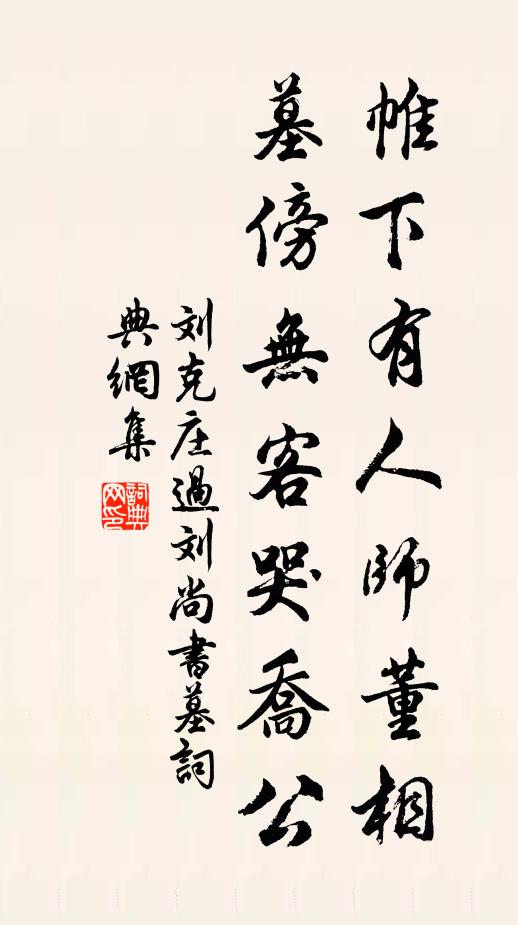 帷下有人師董相
墓傍無客哭喬公
刘克庄過刘尚書墓詞
典網集
詞典
网印